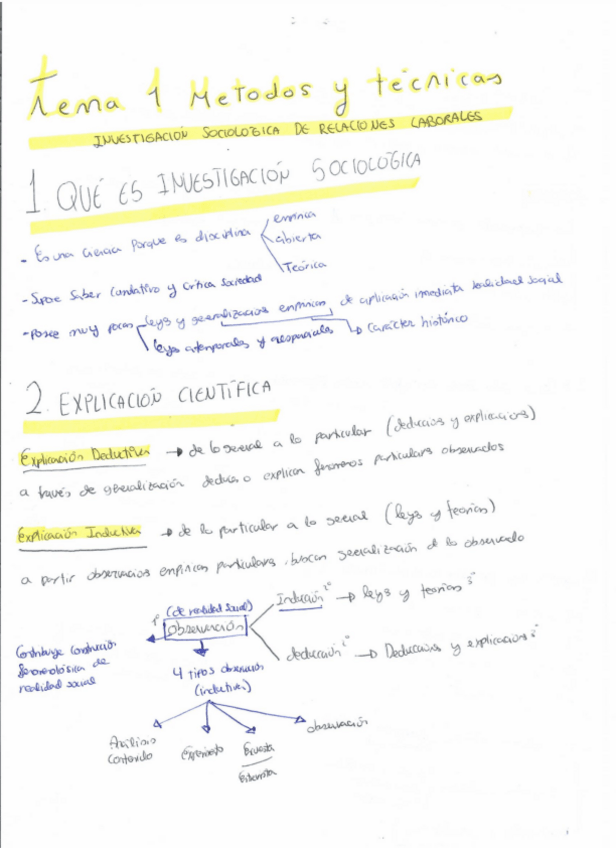 Tema 1 Metodos y técnicas
INVESTIGACIÓN SOCIOLOGICA DE RELACIONES LABORALES
1. QUÉ ES INVESTIGACIÓN SOCIOLOGICA
- Es una ciencia porque es disciplina
empírica
abierta
Teórica
- Supone Saber Cumulativo y Crítica Sociedad
- Posee muy pocas leyes y generalizaciones empíricas de aplicación inmediata realidad social
leyes atemporales y aespaciales → Carácter histórico
2. EXPLICACIÓN CIENTÍFICA
Explicación Deductiva → de lo general a lo particular (deduccios y explicacions)
a través de generalización deduce o explican fenomenos particulares observados
Explicación Inductiva → de lo particular a lo general (leys y teorías)
a partir observacios empíricas particulares, buscan generalización de lo observado
1º (de realidad social)
Observación
Inducción 2º → leys y teorias 3º
deducción 2º → Deduccions y explicacions 3º
Contribuye Construcción
fenomenológica de
realidad social
4 tipos observación
(inductiva)
Análisis
Contenido
Experimento
Encuesta
Entrevista
observación